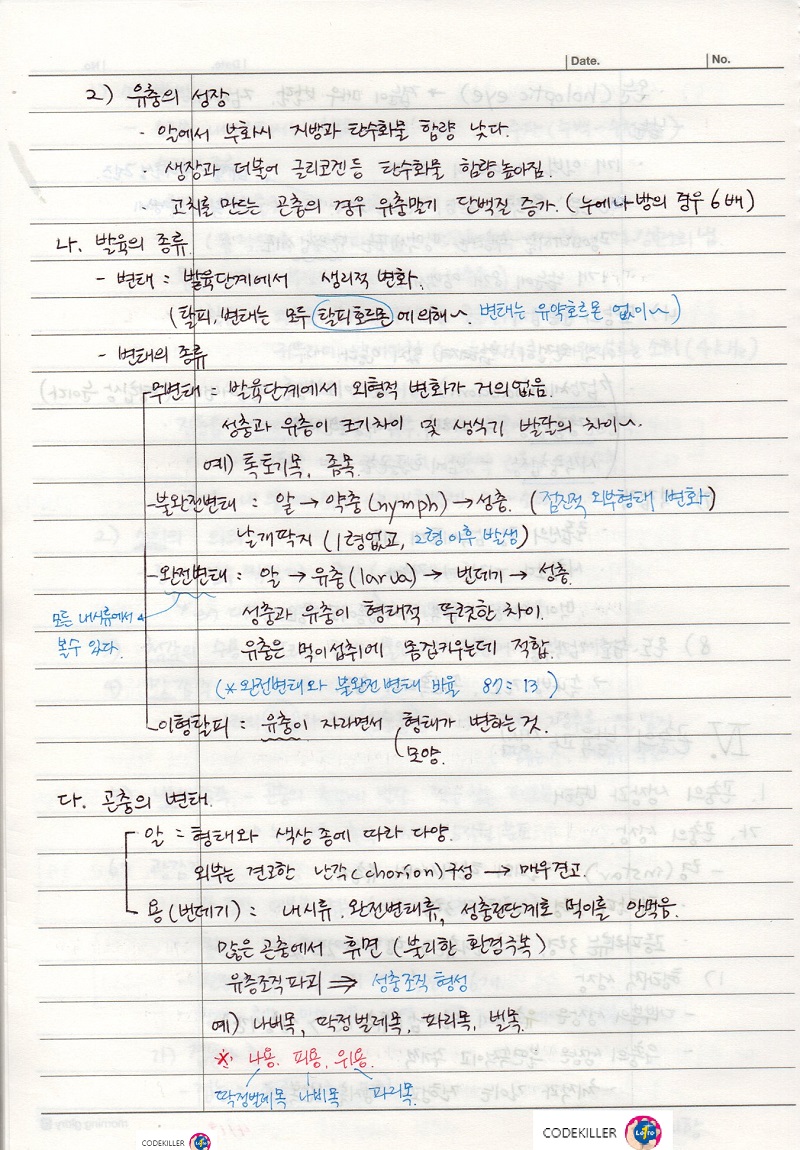 Date. No.
2) 유충의 성장
· 알에서 부화시 지방과 탄수화물 함량 낮다.
· 생장과 더불어 글리코겐 등 탄수화물 함량 높아짐.
· 고치를 만드는 곤충의 경우 유충말기 단백질 증가. (누에나방의 경우 6배)
나. 발육의 종류.
- 변태 : 발육단계에서 생리적 변화.
(탈피, 변태는 모두 탈피호르몬에 의해~. 변태는 유약호르몬 없이~)
- 변태의 종류
무변태 : 발육단계에서 외형적 변화가 거의 없음.
성충과 유충이 크기차이 및 생식기 발달의 차이~.
예) 톡토기목, 좀목.
불완전변태 : 알 → 약충(nymph) → 성충. (점진적 외부형태 변화)
날개딱지 (1령없고, 2령 이후 발생)
완전변태 : 알 → 유충(larva) → 번데기 → 성충.
모든 내시류에서
볼수 있다.
성충과 유충이 형태적 뚜렷한 차이.
유충은 먹이섭취에 몸집키우는데 적합.
(*완전변태와 불완전변태 비율 87 : 13)
이형탈피 : 유충이 자라면서 형태가 변하는 것.
모양.
다. 곤충의 변태.
알 : 형태와 색상 종에 따라 다양.
외부는 견고한 난각(chorion)구성 → 매우견고.
용(번데기) : 내시류. 완전변태류, 성충전단계로 먹이를 안먹음.
많은 곤충에서 휴면 (불리한 환경극복)
유충조직파괴 ⇒ 성충조직 형성
예) 나비목, 딱정벌레목, 파리목, 벌목.
※ 나용. 피용, 위용.
딱정벌레목 나비목 파리목.
CODEKILLER
CODEKILLER